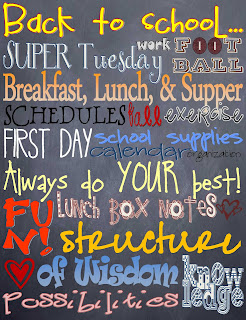 Back to school...
SUPER Tuesday work FOOT
BALL
Breakfast, Lunch, & Supper
SCHEDULES fall exercise
FIRST DAY school supplies
calendar organization
Always do YOUR best!
FU
N! Lunch Box Notes
structure
of Wisdom know
ledge
Possibilities